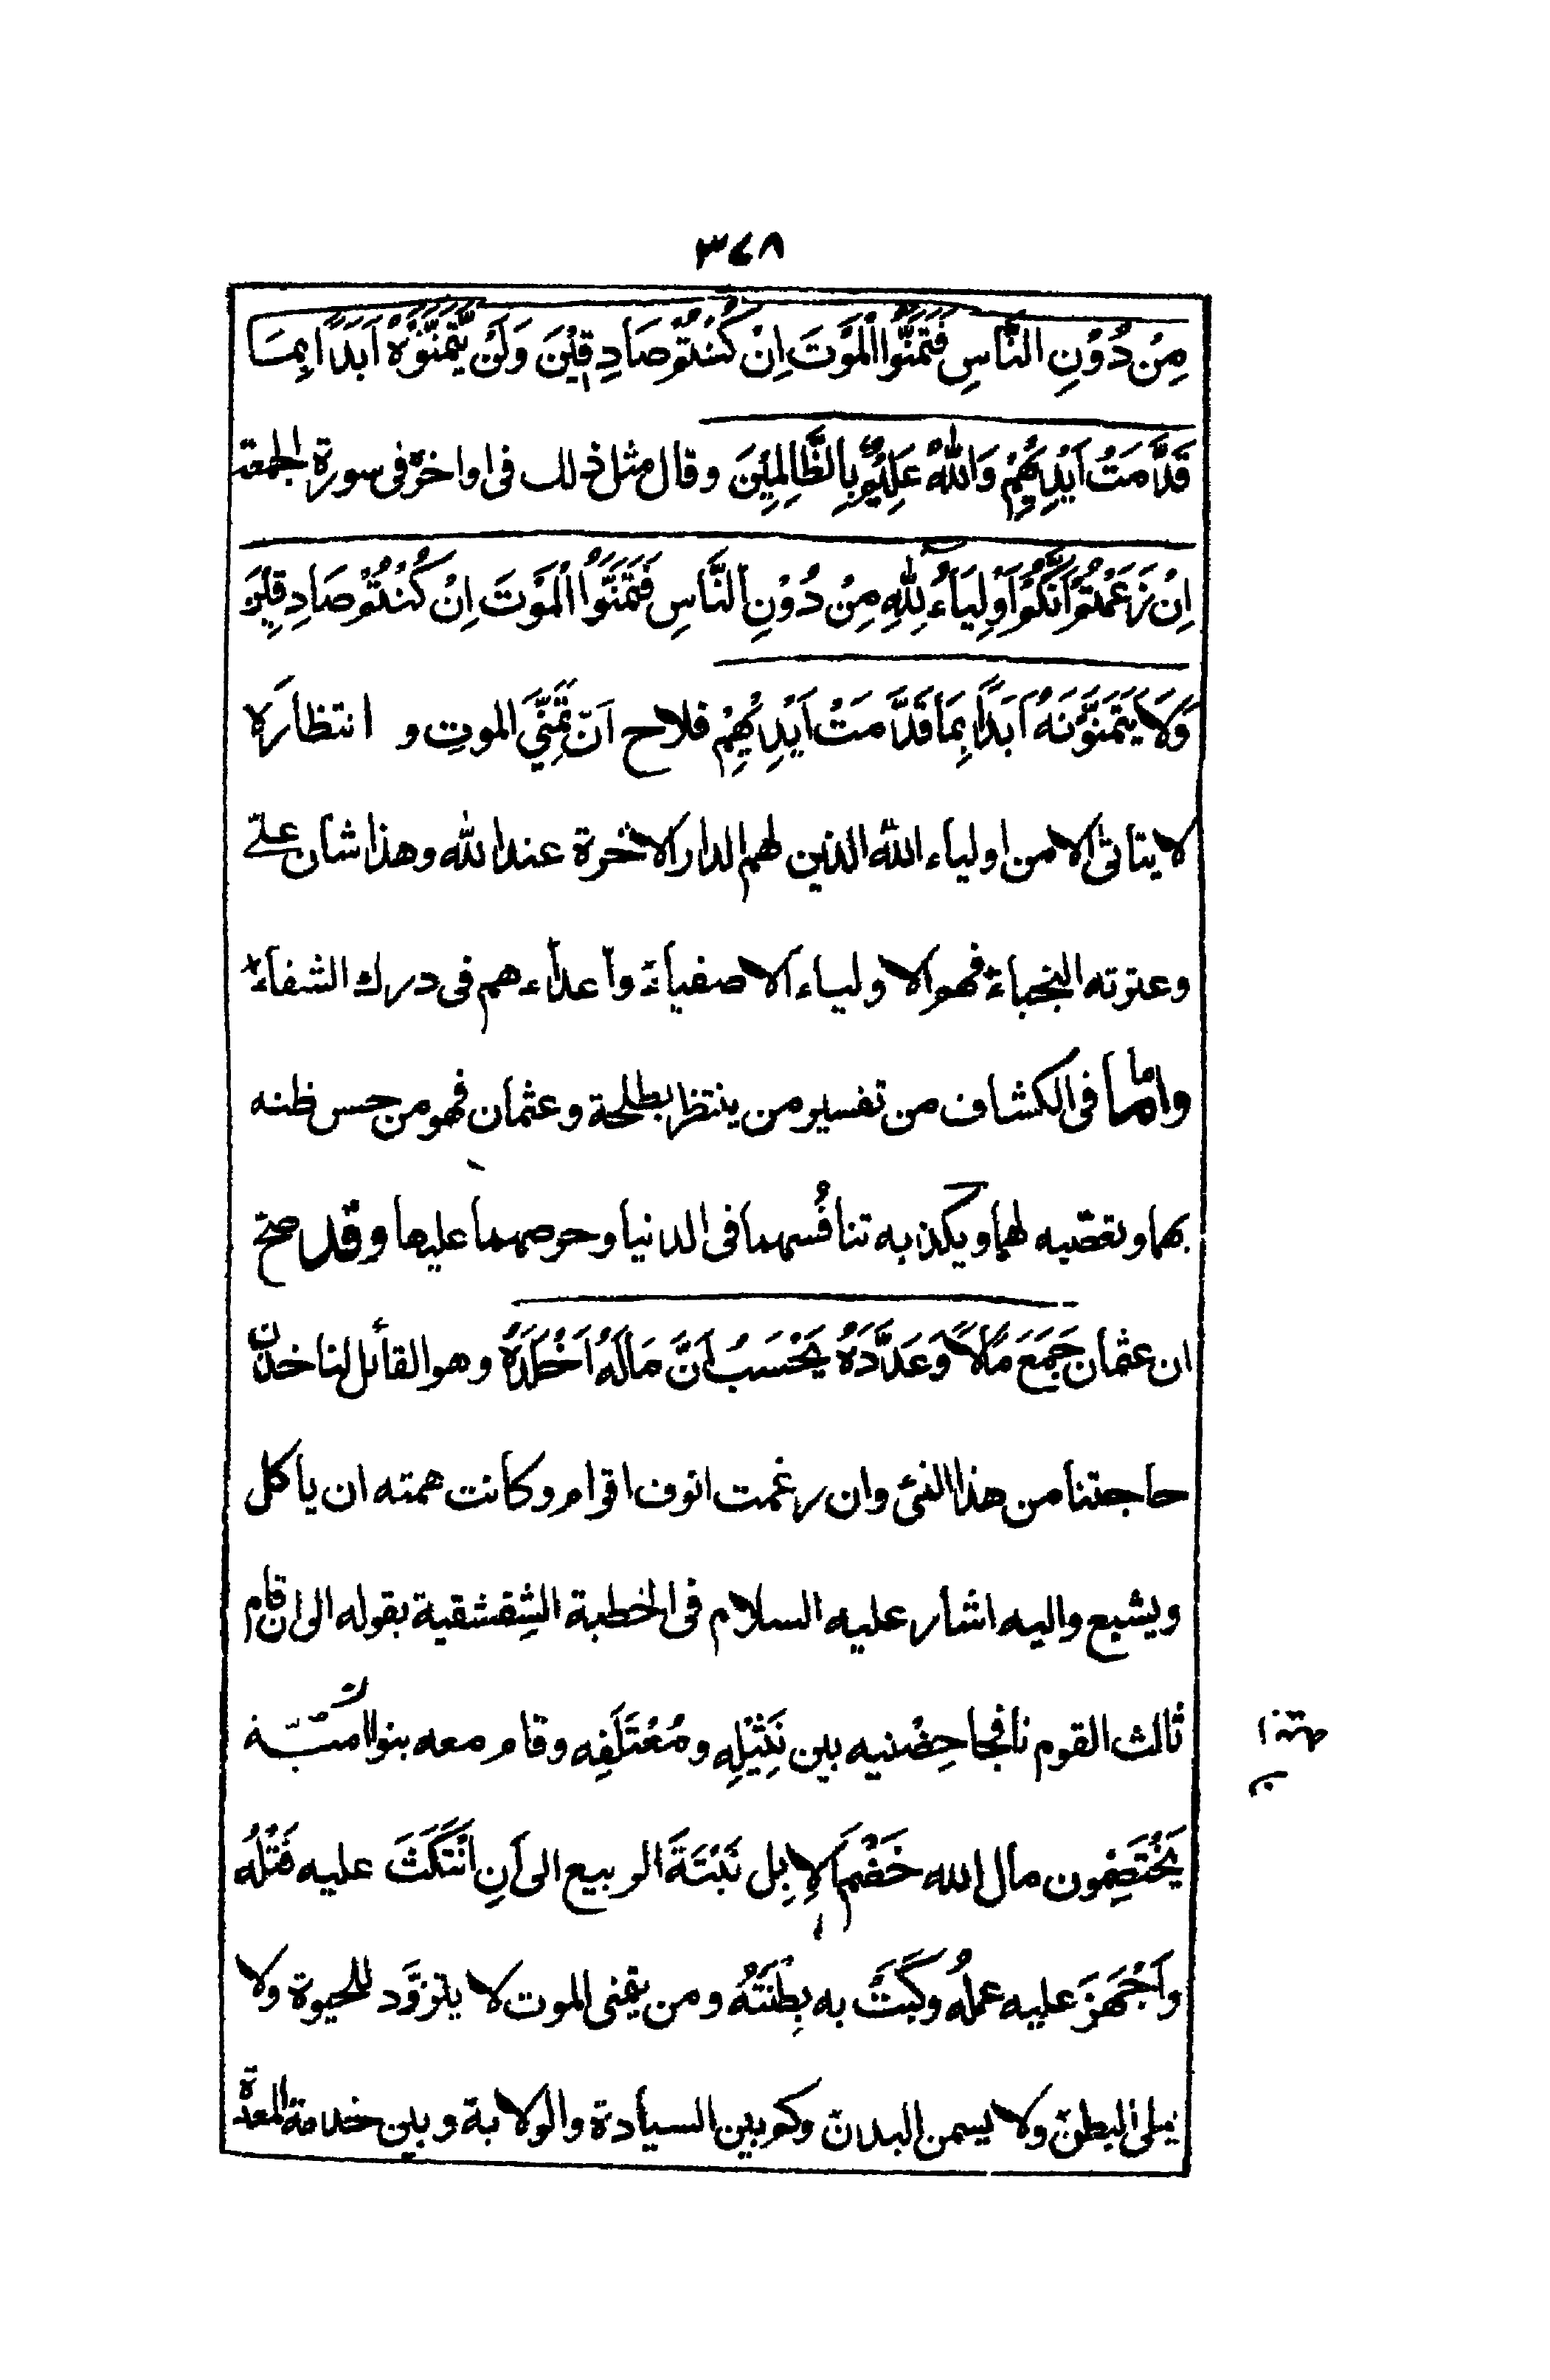 ٣٤٨
مِنْ دُوْنِ النَّاسِ فَتَمَنَّوُا الْمَوْتَ اِنْ كُنْتُمْ صَادِقِيْنَ وَلَنْ يَّتَمَنَّوْهُ اَبَدًا بِمَا
قَدَّمَتْ اَيْدِيْهِمْ وَاللهُ عَلِيْمٌ بِالظَّالِمِيْنَ وقال مثل ذلك فى اواخره فى سورة الجمعة
اِنْ زَعَمْتُمْ اَنَّكُمْ اَوْلِيَاءُ لِلّٰهِ مِنْ دُوْنِ النَّاسِ فَتَمَنَّوُا الْمَوْتَ اِنْ كُنْتُمْ صَادِقِيْنَ
وَلَا يَتَمَنَّوْنَهُ اَبَدًا بِمَا قَدَّمَتْ اَيْدِيْهِمْ فلاح اَنّ تَمَنِّيَ الموتِ و انتظارَه
لا يتاتى الا من اولياء الله الذين لهم الدار الاخرة عند الله وهذا شان علىّ
وعترته النجباء فهم الاولياء الاصفياء واعداءهم فى درك الشفاء
وامّا ما فى الكشاف من تفسير من ينتظر بطلحة وعثمان فهو من حسن ظنه
بهما وتعصّبه لهما ويكذبه تنافُسهما فى الدنيا وحرصهما عليها وقد صحّ
ان عثمان جَمَعَ مَالًا وَعَدَّدَهُ يَحْسَبُ اَنَّ مَالَهُ اَخْلَدَهُ وهو القائل لناخذن
حاجتنا من هذا الفئ وان رغمت انوف اقوام وكانت همته ان ياكل
ويشبع واليه اشار عليه السلام فى الخطبة الشِقشقية بقوله الى ان قام
ثالث القوم نافجا حِضْنيه بين نَثِيْلِه ومُعْتَلَفِه وقام معه بنوا اميّة
يَخْتَضِمون مال الله خَضْمَ الاِبِل نَبْتَةَ الربيع الى اَنِ انْتَكَثَ عليه فَتْلُه
واَجْهَزَ عليه عملُه وكَبَتْ به بِطْنَتُهُ ومن يتمنى الموت لا يتزوَّد للحيوة ولا
يملئ البطن ولا يسمن البدن وكم بين السيادة والولاية وبين خدامة المعدة